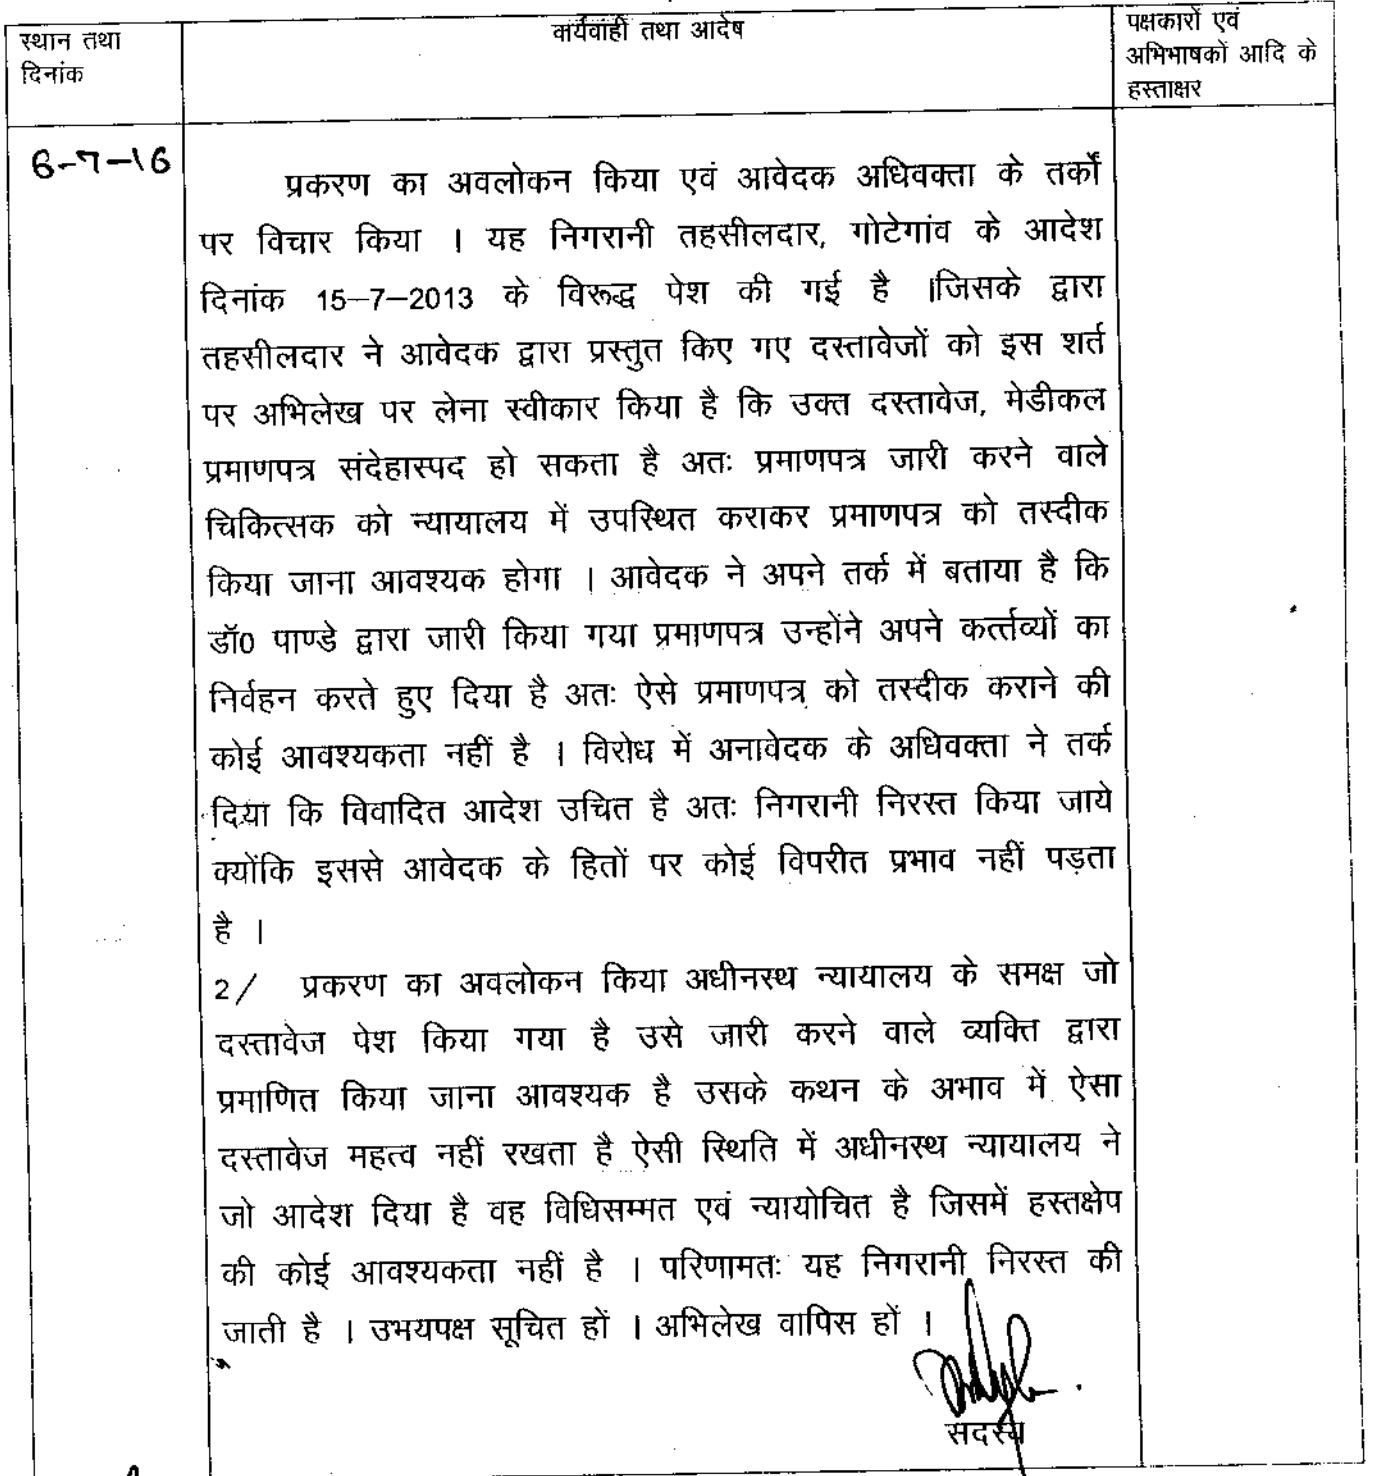 स्थान तथा
दिनांक
कार्यवाही तथा आदेष
पक्षकारों एवं
अभिभाषकों आदि के
हस्ताक्षर
6-7-16
प्रकरण का अवलोकन किया एवं आवेदक अधिवक्ता के तर्कों
पर विचार किया । यह निगरानी तहसीलदार, गोटेगांव के आदेश
दिनांक 15–7–2013 के विरूद्ध पेश की गई है ।जिसके द्वारा
तहसीलदार ने आवेदक द्वारा प्रस्तुत किए गए दस्तावेजों को इस शर्त
पर अभिलेख पर लेना स्वीकार किया है कि उक्त दस्तावेज, मेडीकल
प्रमाणपत्र संदेहास्पद हो सकता है अतः प्रमाणपत्र जारी करने वाले
चिकित्सक को न्यायालय में उपस्थित कराकर प्रमाणपत्र को तस्दीक
किया जाना आवश्यक होगा । आवेदक ने अपने तर्क में बताया है कि
डॉ0 पाण्डे द्वारा जारी किया गया प्रमाणपत्र उन्होंने अपने कर्त्तव्यों का
निर्वहन करते हुए दिया है अतः ऐसे प्रमाणपत्र को तस्दीक कराने की
कोई आवश्यकता नहीं है । विरोध में अनावेदक के अधिवक्ता ने तर्क
दिया कि विवादित आदेश उचित है अतः निगरानी निरस्त किया जाये
क्योंकि इससे आवेदक के हितों पर कोई विपरीत प्रभाव नहीं पड़ता
है ।
2/ प्रकरण का अवलोकन किया अधीनस्थ न्यायालय के समक्ष जो
दस्तावेज पेश किया गया है उसे जारी करने वाले व्यक्ति द्वारा
प्रमाणित किया जाना आवश्यक है उसके कथन के अभाव में ऐसा
दस्तावेज महत्व नहीं रखता है ऐसी स्थिति में अधीनस्थ न्यायालय ने
जो आदेश दिया है वह विधिसम्मत एवं न्यायोचित है जिसमें हस्तक्षेप
की कोई आवश्यकता नहीं है । परिणामतः यह निगरानी निरस्त की
जाती है । उभयपक्ष सूचित हों । अभिलेख वापिस हों ।
सदस्य